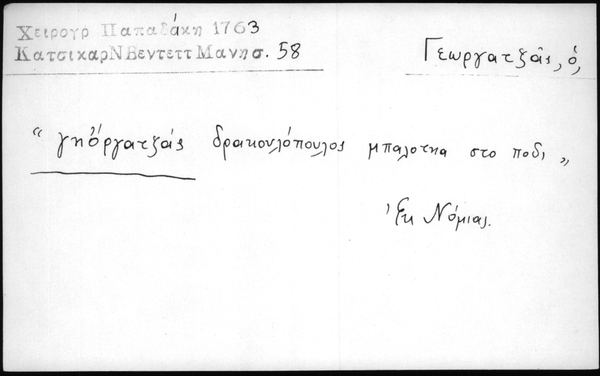 Χειρογρ Παπαδάκη 1763
Κατσικαρ Ν Βενττετ Μανησ. 58
Γεωργατζᾶς, ὁ,
“ γηὀργατζάς δρακουλόπουλος μπαλοτηα στο ποδι „
Ἐκ Νόμιας.